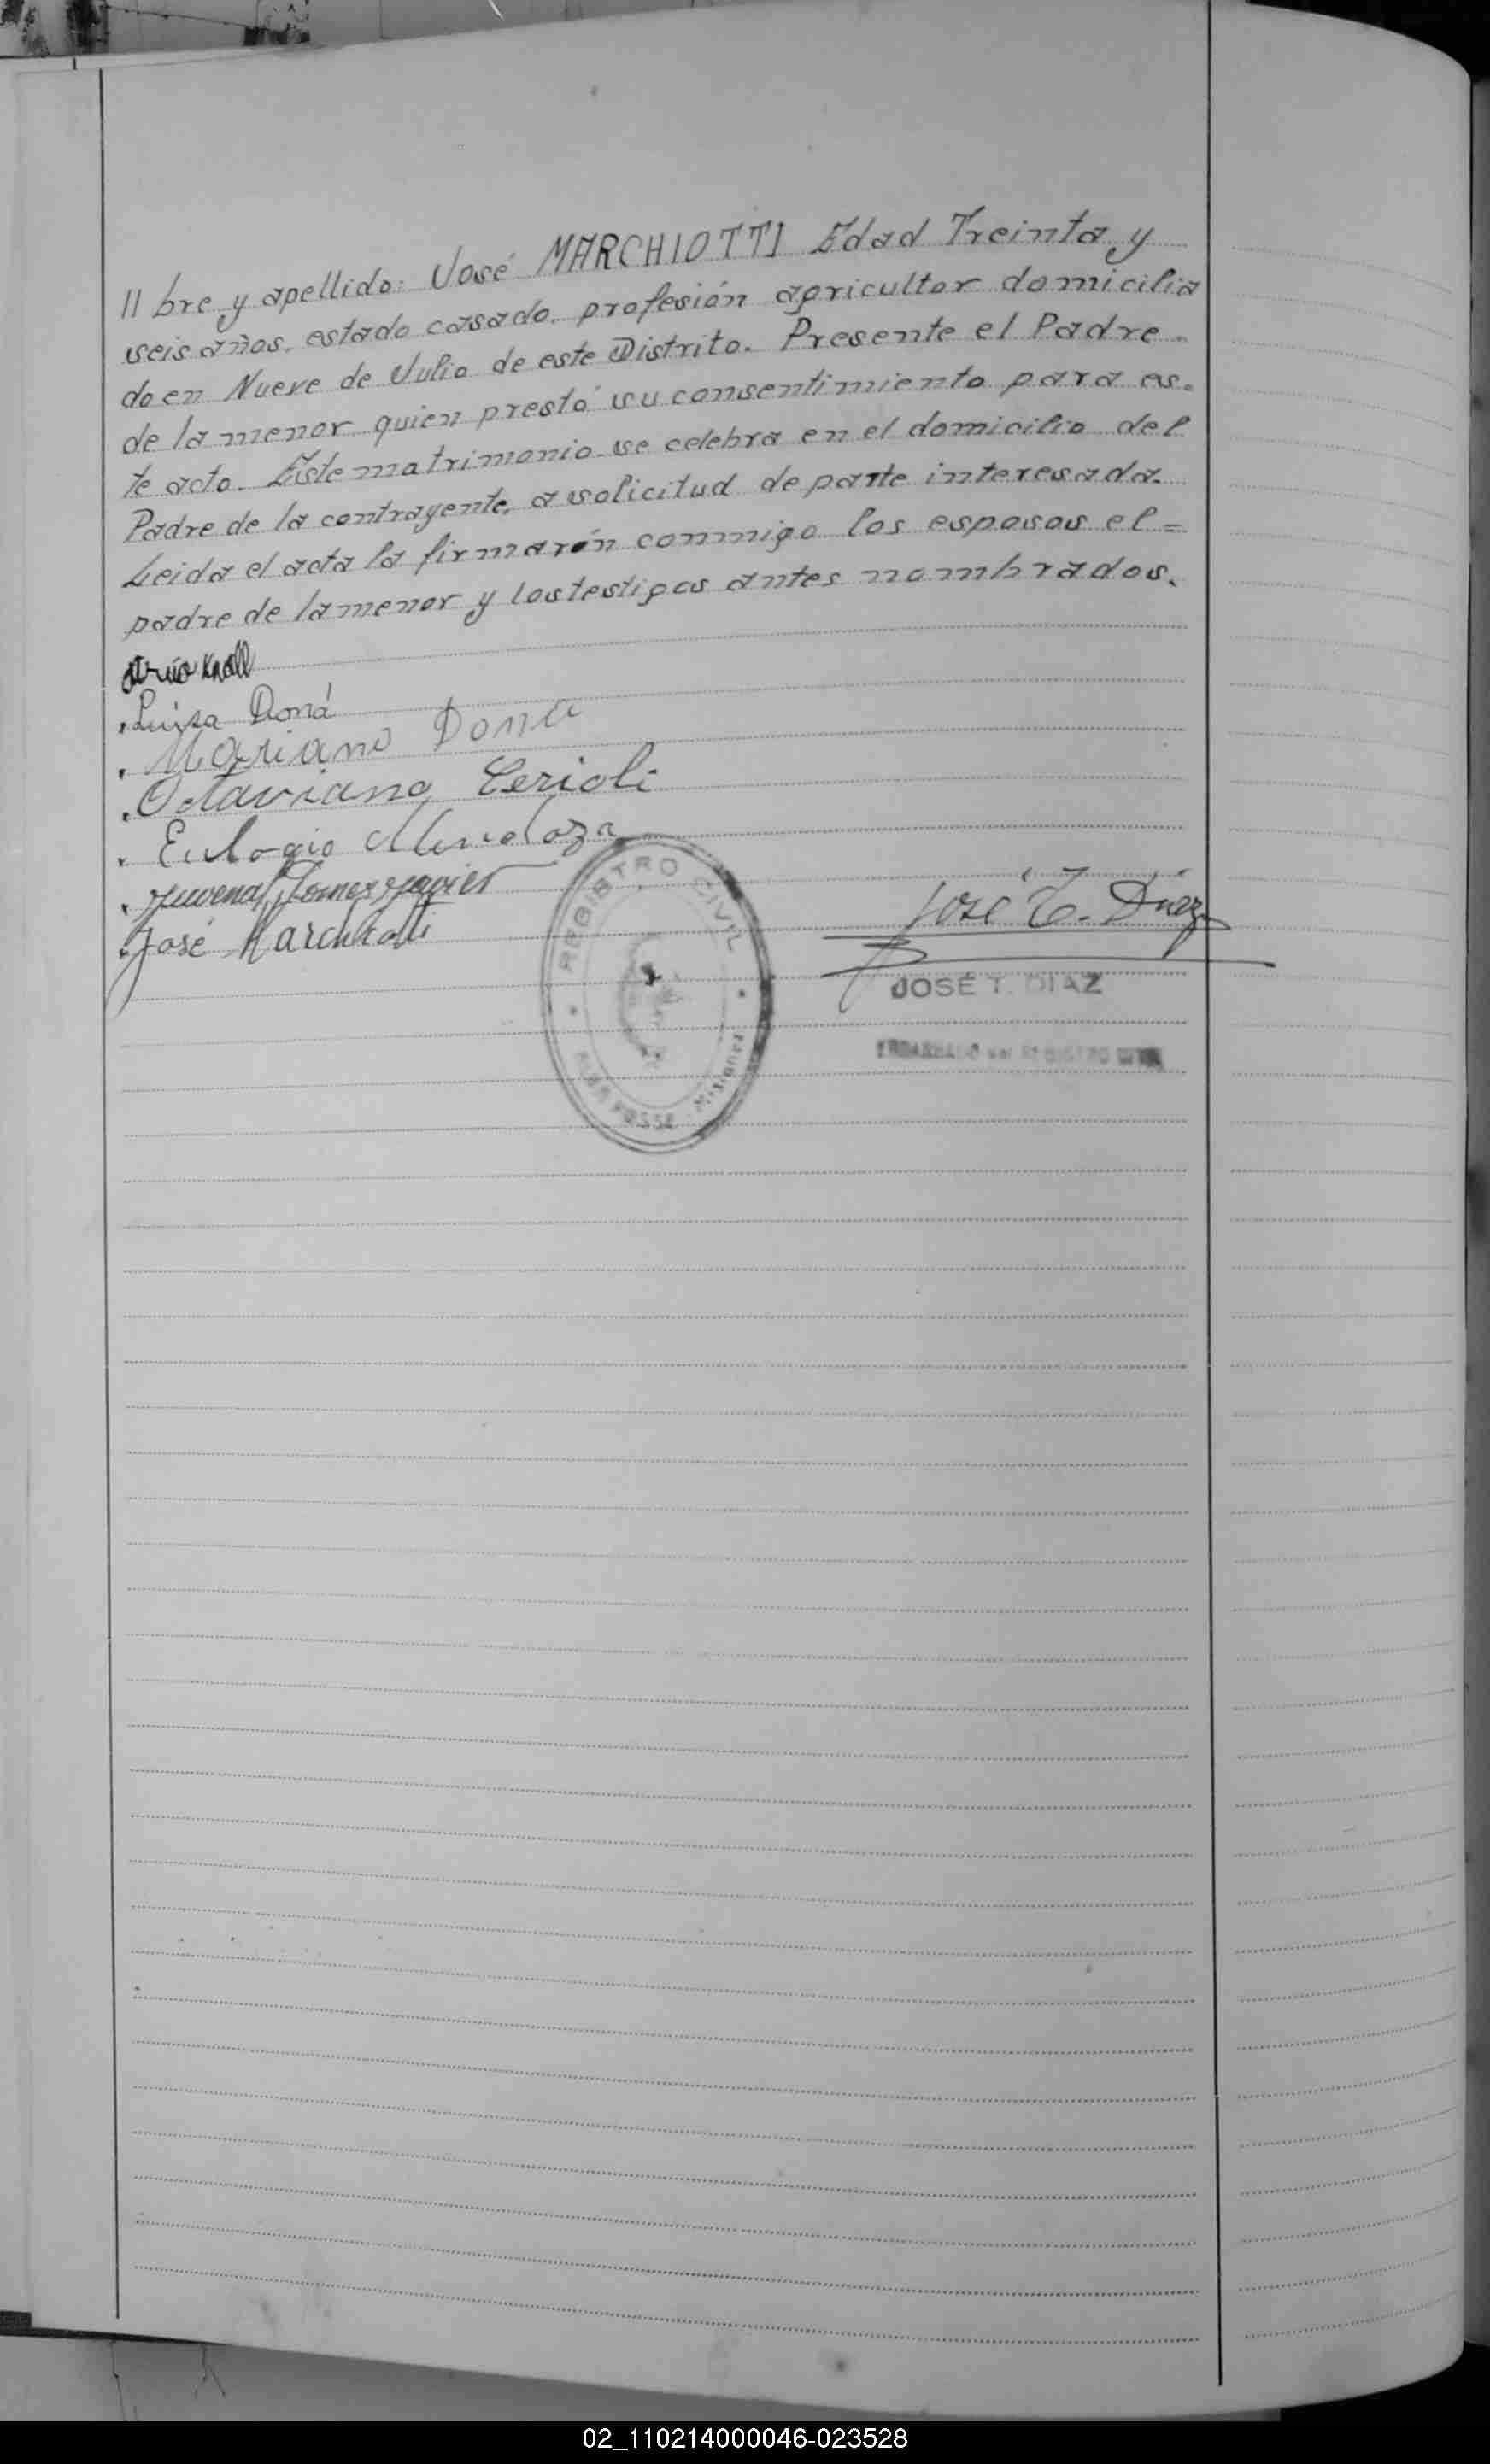 11 bre y apellido: José MARCHIOTTI Edad Treinta y
seis años, estado casado, profesión agricultor domicilia
do en Nueve de Julio de este Distrito. Presente el Padre
de la menor quien prestó su consentimiento para es=
te acto. Este matrimonio se celebra en el domicilio del
Padre de la contrayente, a solicitud de parte interesada.
Leida el acta la firmarón conmigo los esposos el=
padre de la menor y los testigos antes nombrados.
Knoll
Luisa Doná
Mariano Dona
Octaviano Cerioli
Eulogio Mendoza
Juvenal
José Marchiotti
José T. Díaz
JOSÉ T. DIAZ
ENCARGADO del REGISTRO CIVIL
REGISTRO CIVIL
ALBA POSSE - Misiones
02_110214000046-023528